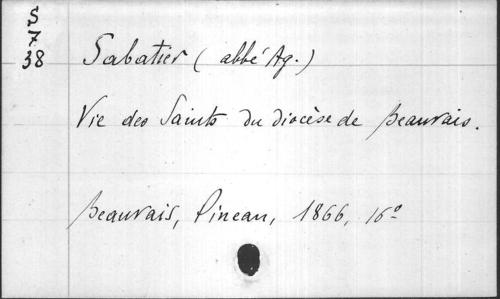 S
7
38
Sabatier (abbé Ag.)
Vie des Saints du diocèse de Beauvais.
Beauvais, Pineau, 1866, 16º